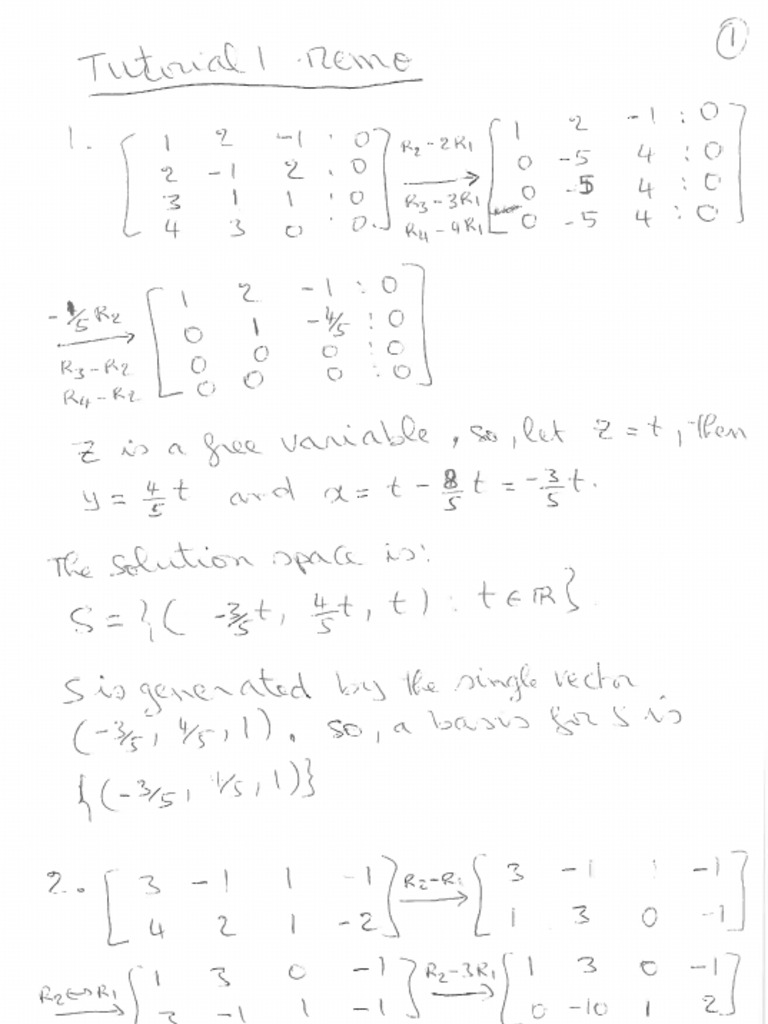 ①
Tutorial 1 Memo
1. [ 1 2 -1 : 0
2 -1 2 : 0
3 1 1 : 0
4 3 0 : 0 ] R2-2R1 → R3-3R1 R4-4R1 [ 1 2 -1 : 0
0 -5 4 : 0
0 -5 4 : 0
0 -5 4 : 0 ]
-1/5 R2 → R3-R2 R4-R2 [ 1 2 -1 : 0
0 1 -4/5 : 0
0 0 0 : 0
0 0 0 : 0 ]
z is a free variable, so, let z = t, then
y = 4/5 t and x = t - 8/5 t = -3/5 t.
The solution space is:
S = {( -3/5 t, 4/5 t, t) : t ∈ ℝ}
S is generated by the single vector
(-3/5, 4/5, 1). so, a basis for S is
{(-3/5, 4/5, 1)}
2. [ 3 -1 1 -1
4 2 1 -2 ] R2-R1 → [ 3 -1 1 -1
1 3 0 -1 ]
R2↔R1 → [ 1 3 0 -1
3 -1 1 -1 ] R2-3R1 → [ 1 3 0 -1
0 -10 1 2 ]